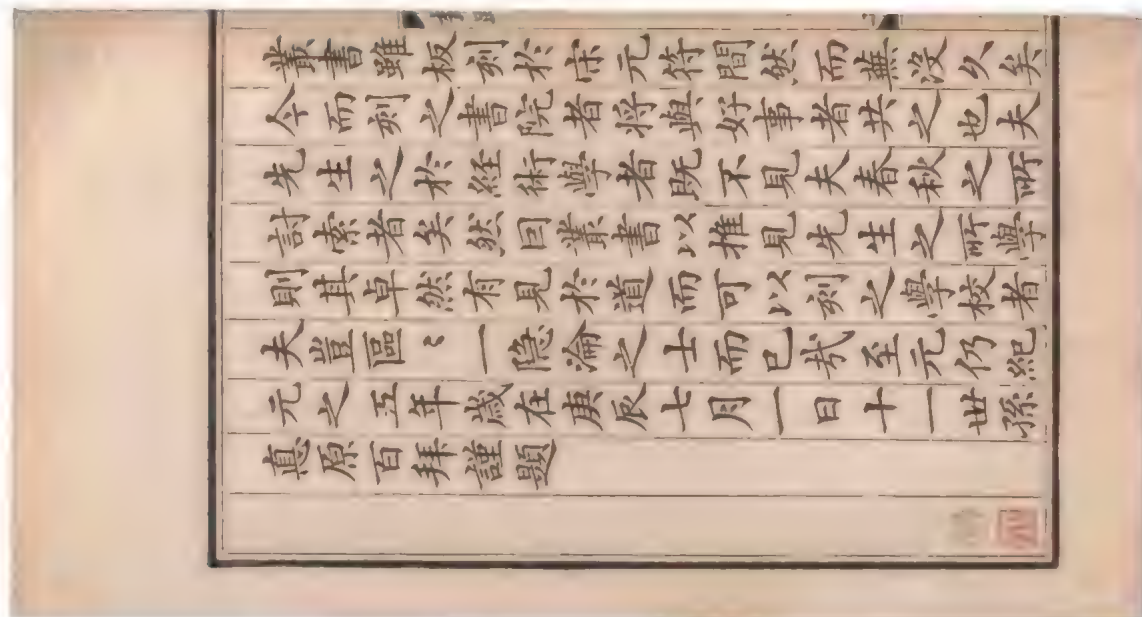 叢書雖板刻於宋元符間然而蕪没久矣
今而刻之書院者将與好事者共之也夫
先生之於経術學者既不見夫春秋之所
討索者矣然囙叢書以推見先生之所學
則其卓然有見於道而可以刻之學校者
夫豈區〻一隐淪之士而已哉至元仍紀
元之五年歳在庚辰七月一日十一世孫
悳原百拜謹題